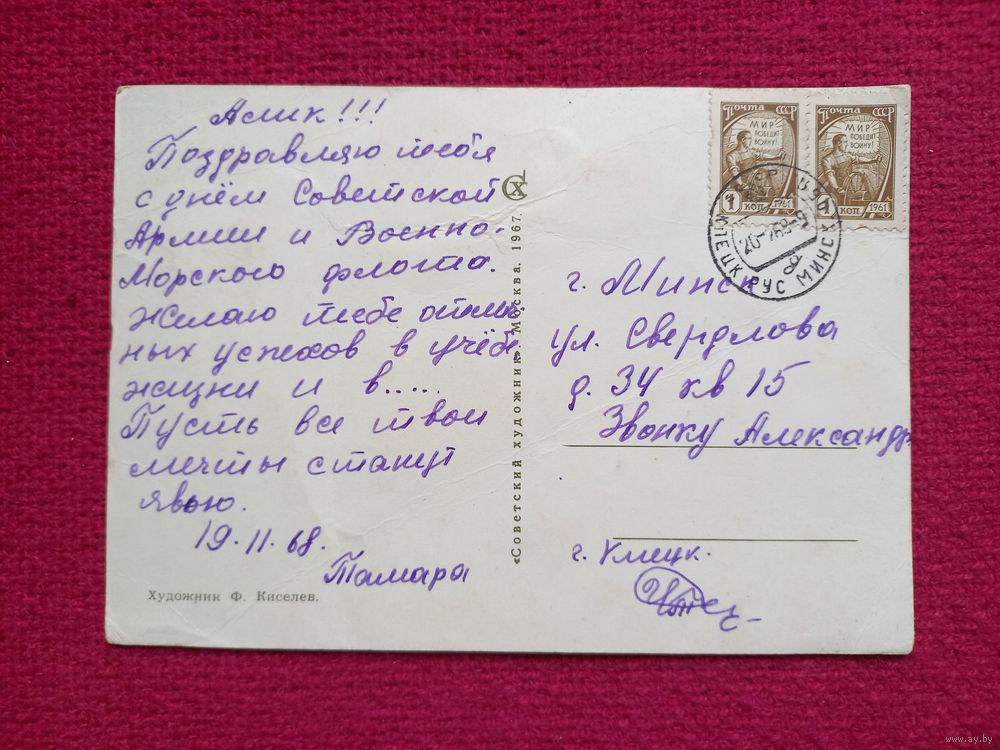 Алик!!!
Поздравляю тебя
с днём Советской
Армии и Военно-
Морского флота.
Желаю тебе отлич
ных успехов в учёбе
жизни и в.....
Пусть все твои
мечты станут
явью.
19.II.68.
Тамара
Художник Ф. Киселев.
«Советский художник» Москва. 1967.
СХ
Почта СССР
МИР
ПОБЕДИТ
ВОЙНУ!
1 КОП 1961
Почта СССР
МИР
ПОБЕДИТ
ВОЙНУ!
1 КОП 1961
КЛЕЦК РУС МИНСК
г. Минск
ул. Свердлова
д. 34 кв 15
Звонку Александр
г. Клецк.
www.ay.by